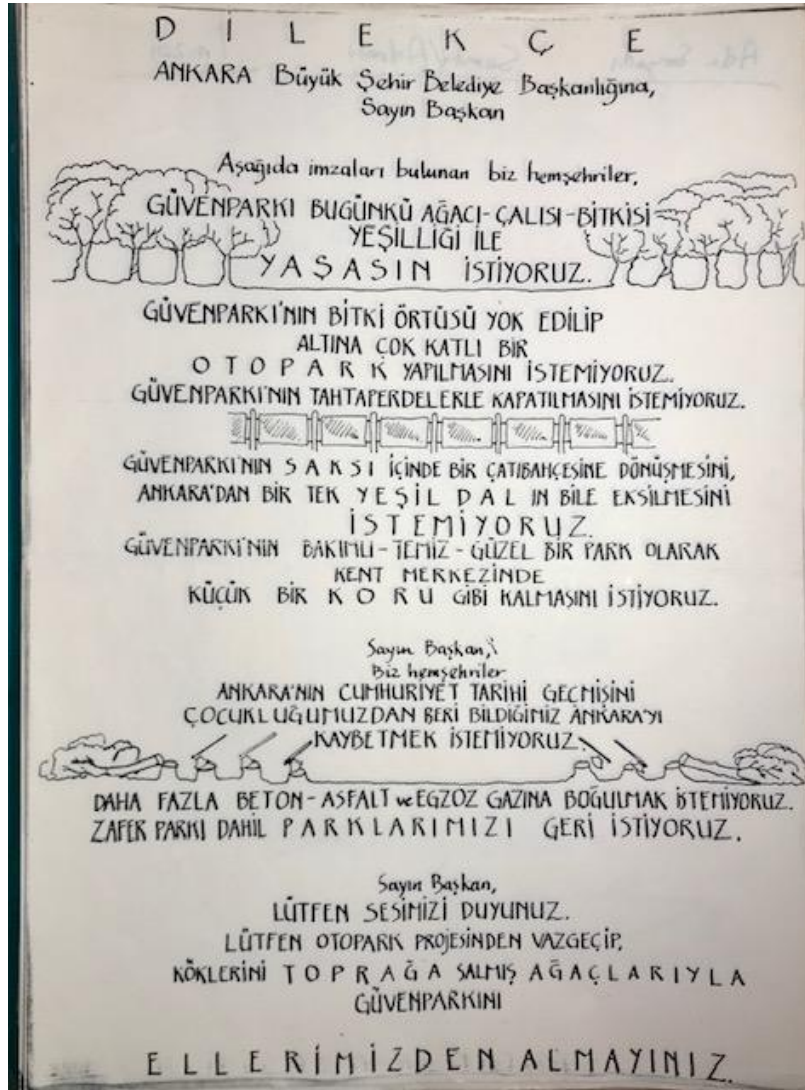 DİLEKÇE
ANKARA Büyük Şehir Belediye Başkanlığına,
Sayın Başkan
Aşağıda imzaları bulunan biz hemşehriler,
GÜVENPARKI BUGÜNKÜ AĞACI-ÇALISI-BİTKİSİ
YEŞİLLİĞİ İLE
YAŞASIN İSTİYORUZ.
GÜVENPARKI'NIN BİTKİ ÖRTÜSÜ YOK EDİLİP
ALTINA ÇOK KATLI BİR
OTOPARK YAPILMASINI İSTEMİYORUZ.
GÜVENPARKI'NIN TAHTAPERDELERLE KAPATILMASINI İSTEMİYORUZ.
GÜVENPARKI'NIN SAKSI İÇİNDE BİR ÇATIBAHÇESİNE DÖNÜŞMESİNİ,
ANKARA'DAN BİR TEK YEŞİL DALIN BİLE EKSİLMESİNİ
İSTEMİYORUZ.
GÜVENPARKI'NIN BAKIMLI-TEMİZ-GÜZEL BİR PARK OLARAK
KENT MERKEZİNDE
KÜÇÜK BİR KORU GİBİ KALMASINI İSTİYORUZ.
Sayın Başkan,
Biz hemşehriler
ANKARA'NIN CUMHURİYET TARİHİ GEÇMİŞİNİ
ÇOCUKLUĞUMUZDAN BERİ BİLDİĞİMİZ ANKARA'YI
KAYBETMEK İSTEMİYORUZ.
DAHA FAZLA BETON-ASFALT ve EGZOZ GAZINA BOĞULMAK İSTEMİYORUZ.
ZAFER PARKI DAHİL PARKLARIMIZI GERİ İSTİYORUZ.
Sayın Başkan,
LÜTFEN SESİMİZİ DUYUNUZ.
LÜTFEN OTOPARK PROJESİNDEN VAZGEÇİP,
KÖKLERİNİ TOPRAĞA SALMIŞ AĞAÇLARIYLA
GÜVENPARKINI
ELLERİMİZDEN ALMAYINIZ.